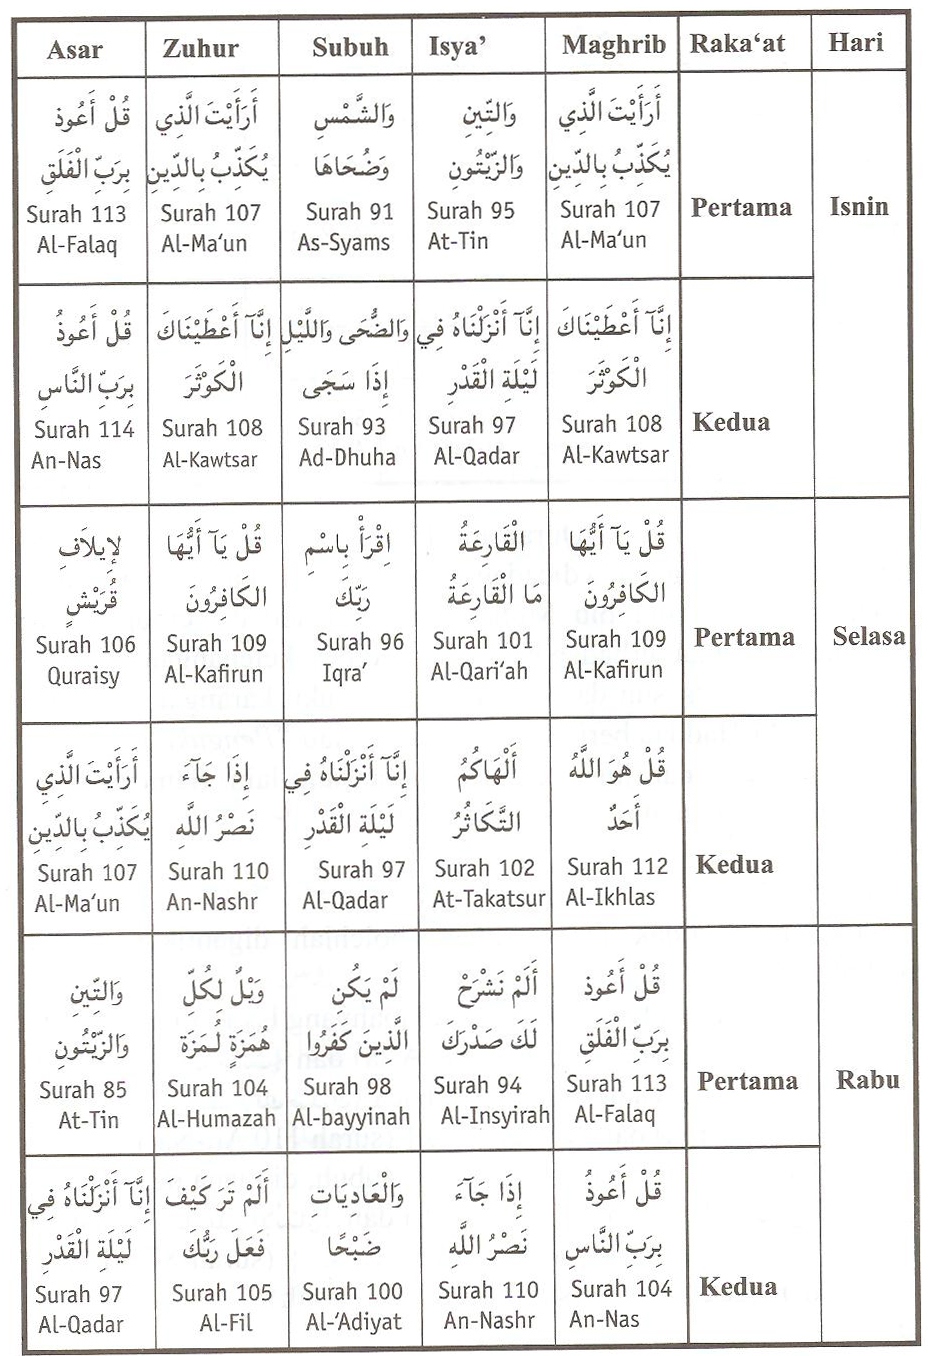 Asar Zuhur Subuh Isya’ Maghrib Raka‘at Hari
قُلْ أَعُوذ
بِرَبِّ الْفَلَقِ
Surah 113
Al-Falaq
أَرَأَيْتَ الَّذِي
يُكَذِّبُ بِالدِّينِ
Surah 107
Al-Ma‘un
وَالشَّمْسِ
وَضُحَاهَا
Surah 91
As-Syams
وَالتِّينِ
وَالزَّيْتُونِ
Surah 95
At-Tin
أَرَأَيْتَ الَّذِي
يُكَذِّبُ بِالدِّينِ
Surah 107
Al-Ma‘un
Pertama
Isnin
قُلْ أَعُوذُ
بِرَبِّ النَّاسِ
Surah 114
An-Nas
إِنَّآ أَعْطَيْنَاكَ
الْكَوْثَرَ
Surah 108
Al-Kawtsar
وَالضُّحَى وَاللَّيْلِ
إِذَا سَجَى
Surah 93
Ad-Dhuha
إِنَّآ أَنْزَلْنَاهُ فِي
لَيْلَةِ الْقَدْرِ
Surah 97
Al-Qadar
إِنَّآ أَعْطَيْنَاكَ
الْكَوْثَرَ
Surah 108
Al-Kawtsar
Kedua
لإِيلاَفِ
قُرَيْشٍ
Surah 106
Quraisy
قُلْ يَآ أَيُّهَا
الكَافِرُونَ
Surah 109
Al-Kafirun
اِقْرَأْ بِاسْمِ
رَبِّكَ
Surah 96
Iqra’
الْقَارِعَةُ
مَا الْقَارِعَةُ
Surah 101
Al-Qari‘ah
قُلْ يَآ أَيُّهَا
الكَافِرُونَ
Surah 109
Al-Kafirun
Pertama
Selasa
أَرَأَيْتَ الَّذِي
يُكَذِّبُ بِالدِّينِ
Surah 107
Al-Ma‘un
إِذَا جَآءَ
نَصْرُ اللَّهِ
Surah 110
An-Nashr
إِنَّآ أَنْزَلْنَاهُ فِي
لَيْلَةِ الْقَدْرِ
Surah 97
Al-Qadar
أَلْهَاكُمُ
التَّكَاثُرُ
Surah 102
At-Takatsur
قُلْ هُوَ اللَّهُ
أَحَدٌ
Surah 112
Al-Ikhlas
Kedua
وَالتِّينِ
وَالزَّيْتُونِ
Surah 85
At-Tin
وَيْلٌ لِكُلِّ
هُمَزَةٍ لُمَزَة
Surah 104
Al-Humazah
لَمْ يَكُنِ
الَّذِينَ كَفَرُوا
Surah 98
Al-bayyinah
أَلَمْ نَشْرَحْ
لَكَ صَدْرَكَ
Surah 94
Al-Insyirah
قُلْ أَعُوذ
بِرَبِّ الْفَلَقِ
Surah 113
Al-Falaq
Pertama
Rabu
إِنَّآ أَنْزَلْنَاهُ فِي
لَيْلَةِ الْقَدْرِ
Surah 97
Al-Qadar
أَلَمْ تَرَ كَيْفَ
فَعَلَ رَبُّكَ
Surah 105
Al-Fil
وَالْعَادِيَاتِ
ضَبْحًا
Surah 100
Al-‘Adiyat
إِذَا جَآءَ
نَصْرُ اللَّهِ
Surah 110
An-Nashr
قُلْ أَعُوذُ
بِرَبِّ النَّاسِ
Surah 104
An-Nas
Kedua